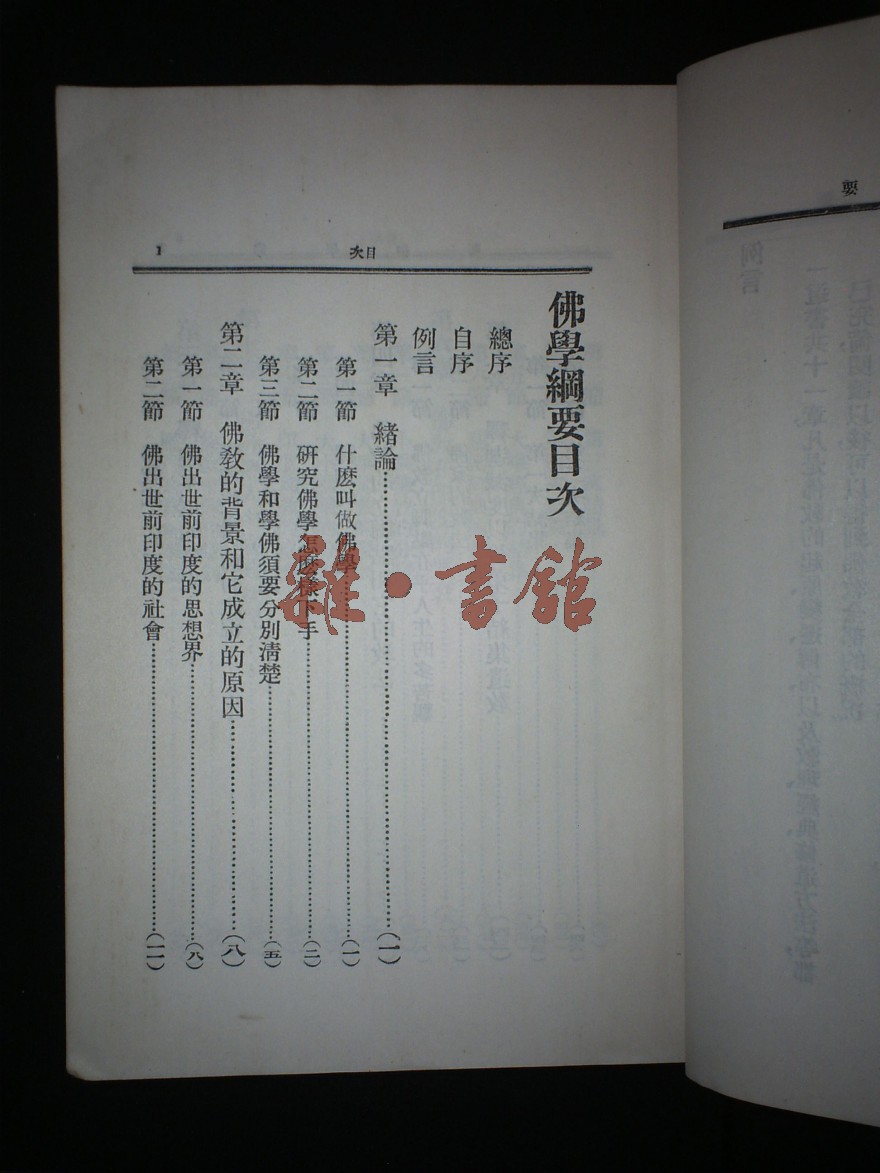 目次
1
佛學綱要目次
總序
自序
例言
第一章 緒論……(一)
第一節 什麼叫做佛學……(一)
第二節 研究佛學怎麼樣下手……(二)
第三節 佛學和學佛須要分別清楚……(五)
第二章 佛教的背景和它成立的原因……(八)
第一節 佛出世前印度的思想界……(八)
第二節 佛出世前印度的社會……(一一)
要
雜·書館